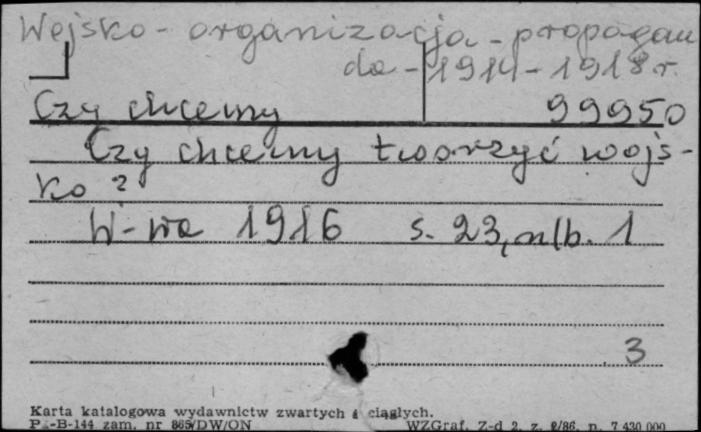 Wojsko - organizacja - propagan
da - 1914 - 1918 r.
Czy chcemy 99950
Czy chcemy tworzyć wojs-
ko?
W-wa 1916 s. 23, nlb. 1
3
Karta katalogowa wydawnictw zwartych i ciągłych.
-B-144 zam. nr 865/DW/ON WZGraf. Z-d 2, z. 2/86, n. 7 430 000